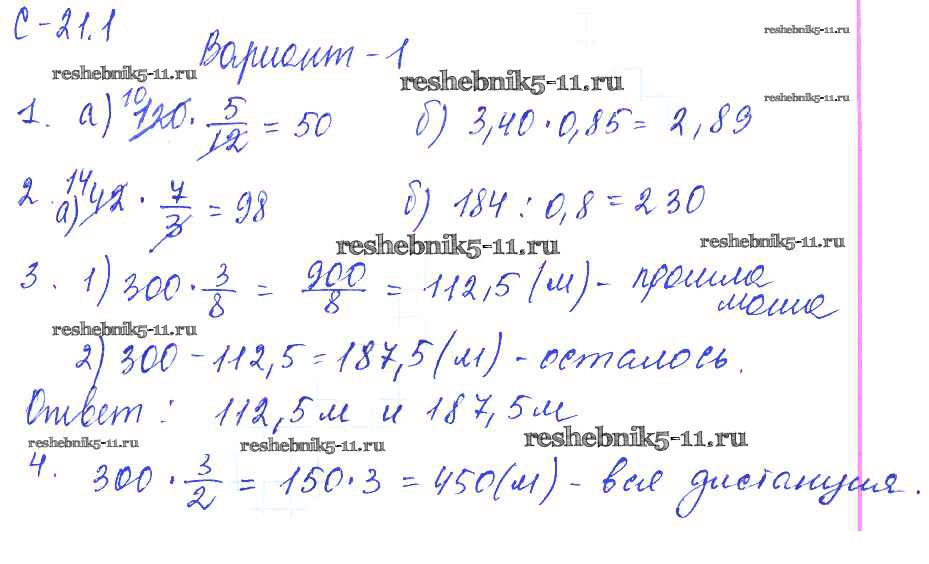 С-21.1
reshebnik5-11.ru
Вариант-1
reshebnik5-11.ru
reshebnik5-11.ru
reshebnik5-11.ru
1. а) 10 120 · 5/12 = 50 б) 3,40 · 0,85 = 2,89
2. а) 14 42 · 7/3 = 98 б) 184 : 0,8 = 230
reshebnik5-11.ru
reshebnik5-11.ru
3. 1) 300 · 3/8 = 900/8 = 112,5 (м) - прошла
маша
reshebnik5-11.ru
2) 300 - 112,5 = 187,5 (м) - осталось.
Ответ: 112,5 м и 187,5 м
reshebnik5-11.ru
reshebnik5-11.ru
reshebnik5-11.ru
4. 300 · 3/2 = 150 · 3 = 450 (м) - вся дистанция.